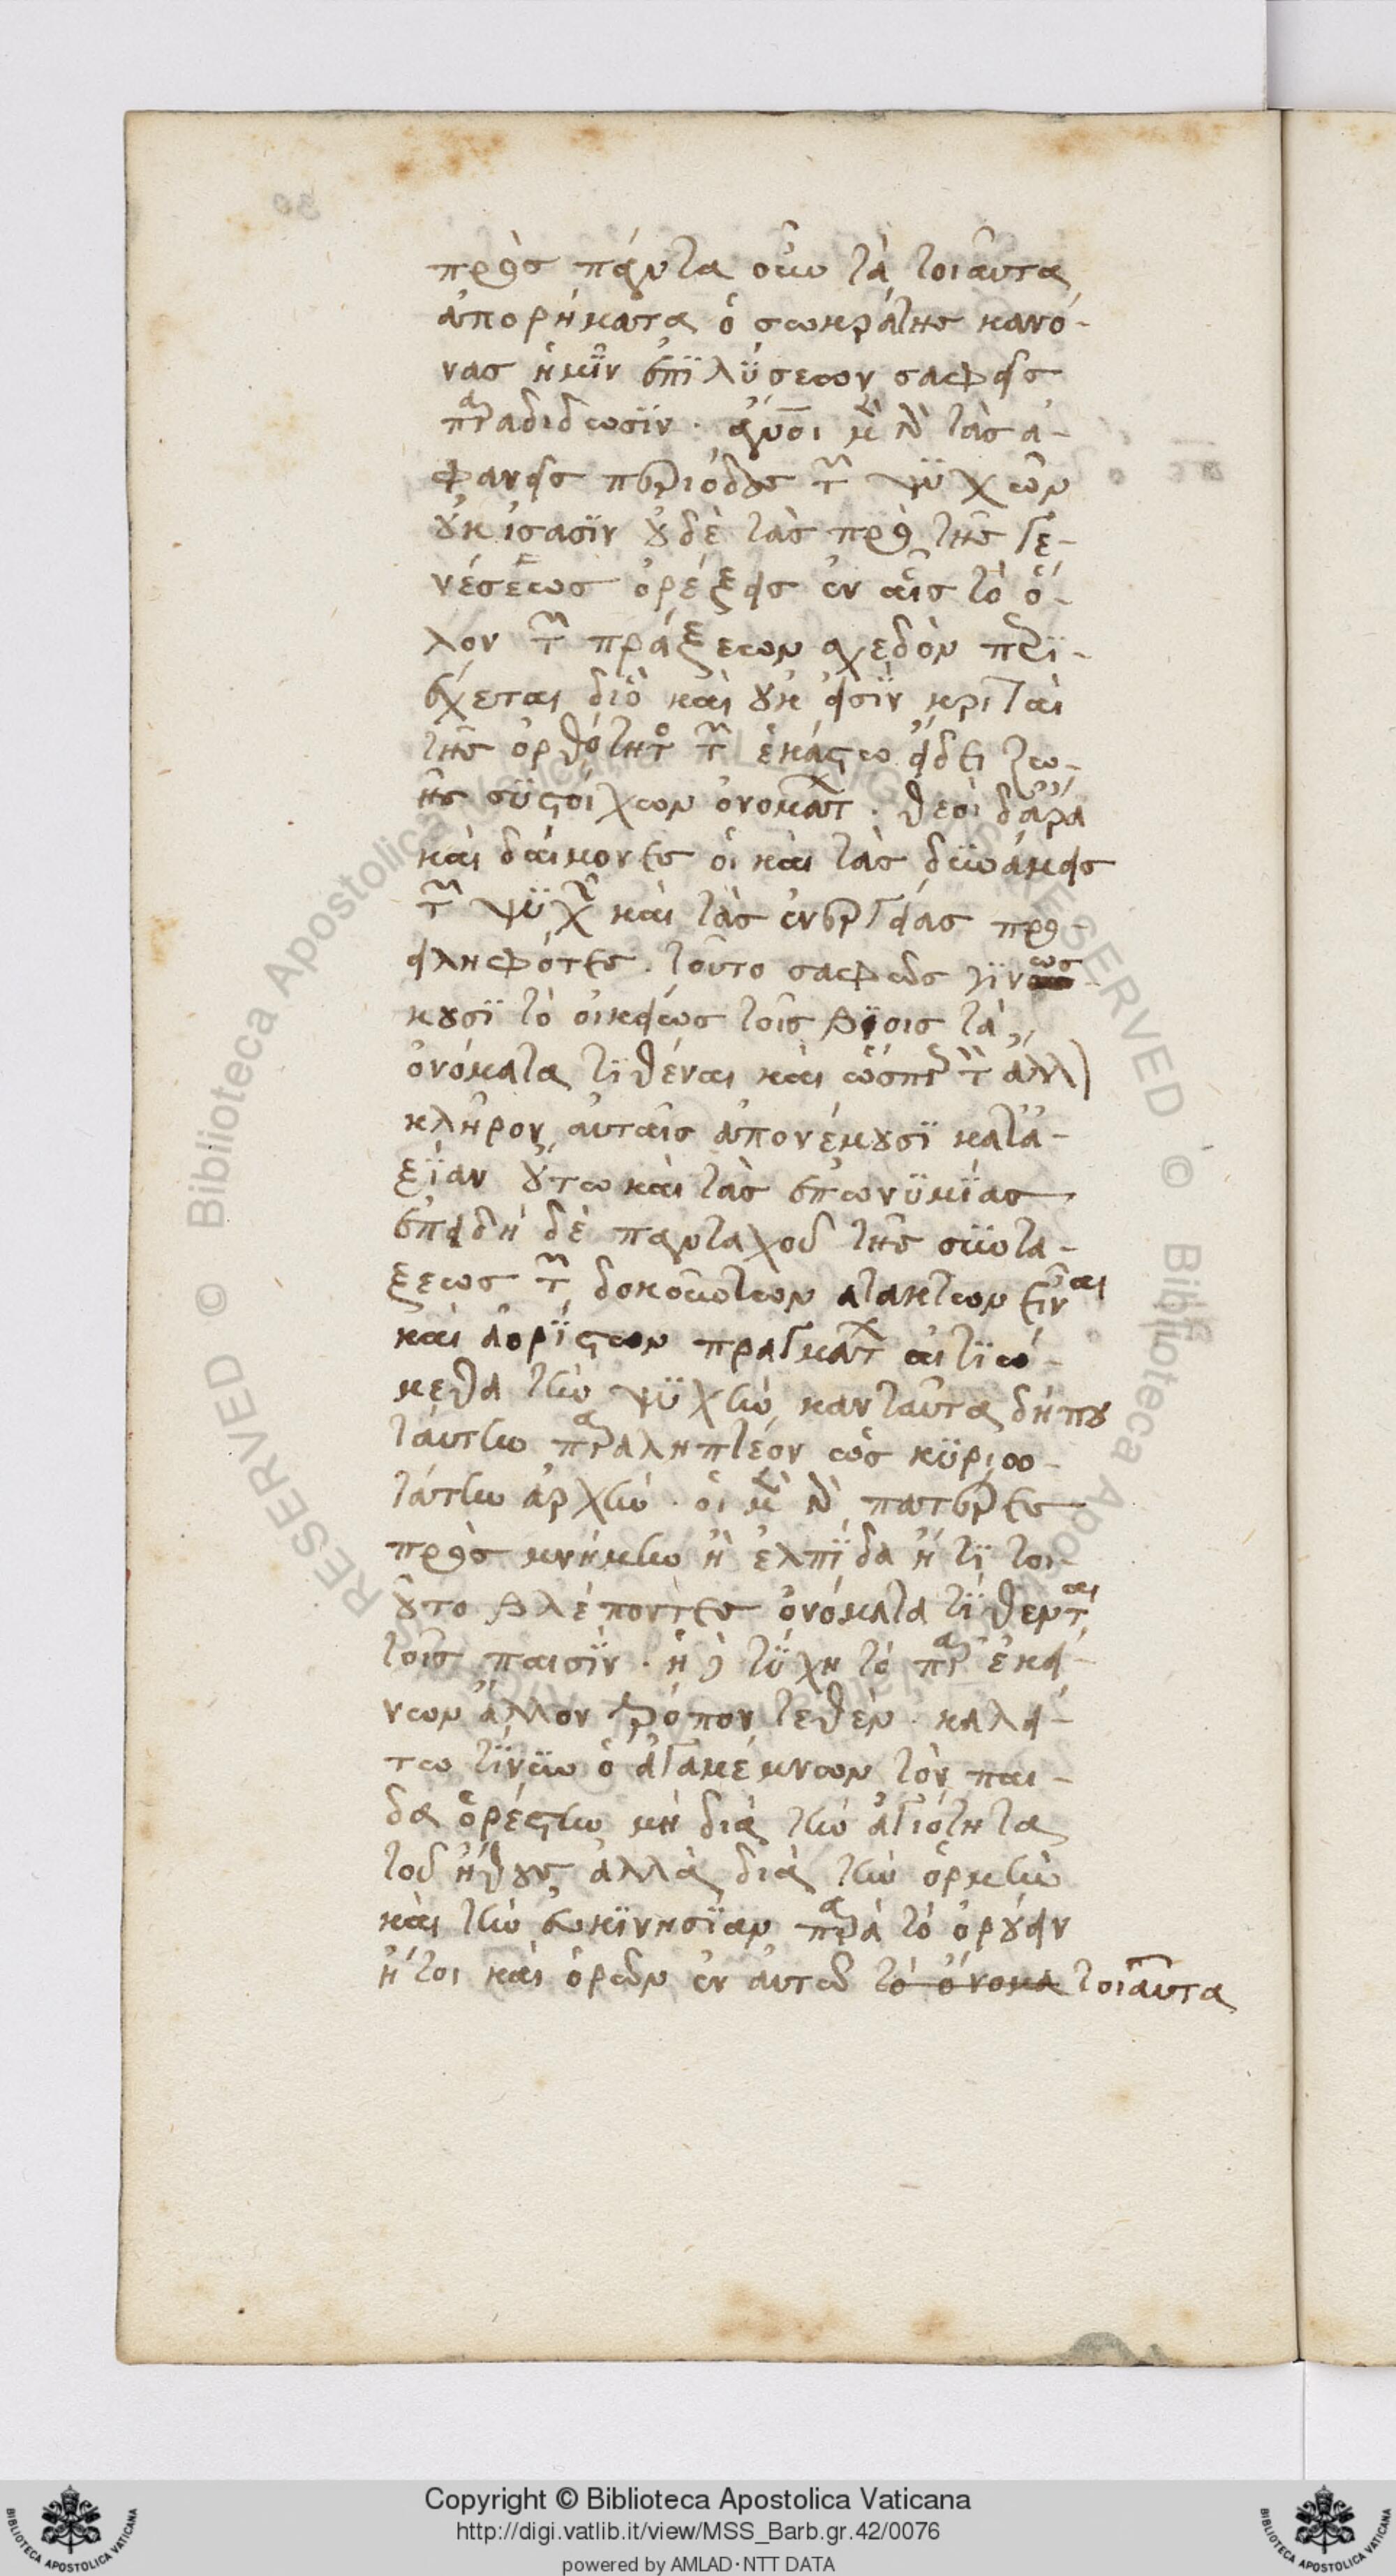 πρὸς πάντα οὖν τὰ τοιαῦτα
ἀπορήματα ὁ σωκράτης κανό-
νας ἡμῖν ἐπιλύσεων σαφεῖς
παραδίδωσιν. ἄνοι μὲν γὰρ τὰς ἀ-
φανεῖς περιόδους τῶν ψυχῶν
οὐκ ἴσασιν οὐδὲ τὰς πρὸ τῆς γε-
νέσεως ὀρέξεις ἐν αἷς τὸ ὅ-
λον τῶν πράξεων σχεδὸν περι-
έχεται διὸ καὶ οὐκ εἰσὶν κριταὶ
τῆς ὀρθότητος τῶν ἑκάστω εἴδει ζω-
ῆς συστοίχων ὀνομάτων. θεοὶ δ' ἄρα
καὶ δαίμονες οἱ καὶ τὰς δυνάμεις
τῶν ψυχῶν καὶ τὰς ἐνεργείας προ-
ειληφότες. τοῦτο σαφῶς γινως
κουσι τὸ οἰκείως τοῖς βίοις τὰ
ὀνόματα τιθέναι καὶ ὥσπερ τὸν ἄλλ
κλῆρον αὐταῖς ἀπονέμουσι κατ' ἀ-
ξίαν οὕτω καὶ τὰς ἐπωνυμίας
ἐπειδὴ δὲ πανταχοῦ τῆς συντά-
ξεως τῶν δοκούντων ἀτάκτων εἶναι
καὶ ἀορίστων πραγμάτων αἰτιώ-
μεθα τὴν ψυχὴν κἀνταῦθα δήπου
ταύτην παραληπτέον ὡς κυριω-
τάτην ἀρχήν. οἱ μὲν γὰρ πατέρες
πρὸς μνήμην ἢ ἐλπίδα ἤ τι τοι-
οῦτο βλέποντες ὀνόματα τίθενται
τοῖς παισίν. ἡ δὲ τύχη τὸ παρ' ἐκεί-
νων ἄλλον τρόπον τεθέν. καλεί-
τω τοίνυν ὁ ἀγαμέμνων τὸν παῖ-
δα ὀρέστην μὴ διὰ τὴν ἀγριότητα
τοῦ ἤθους ἀλλὰ διὰ τὴν ὁρμὴν
καὶ τὴν εὐκινησίαν παρὰ τὸ ὀρούειν
ἤτοι καὶ ὁρῶν ἐν αὐτῷ τὸ ὄνομα τοιαῦτα
Copyright © Biblioteca Apostolica Vaticana
http://digi.vatlib.it/view/MSS_Barb.gr.42/0076
powered by AMLAD·NTT DATA